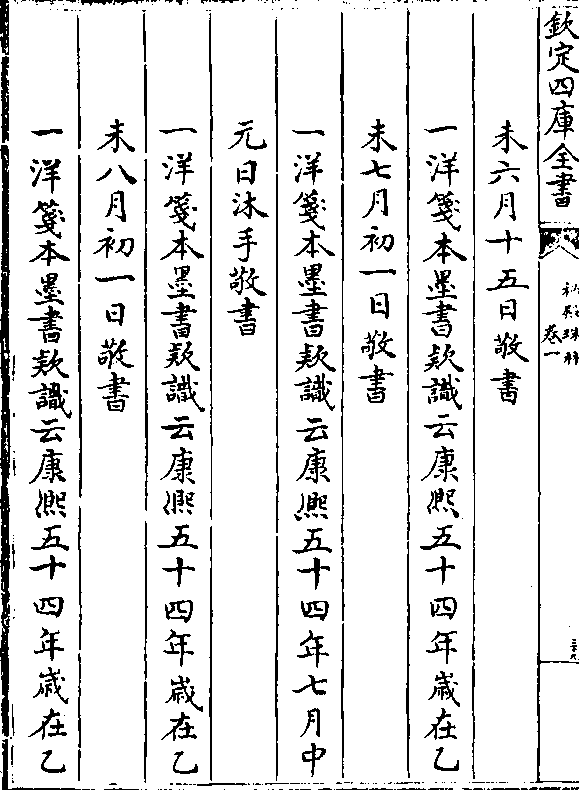 欽定四庫全書
秘殿珠林
卷一
未六月十五日敬書
一洋箋本墨書款識云康熙五十四年歲在乙
未七月初一日敬書
一洋箋本墨書款識云康熙五十四年七月中
元日沐手敬書
一洋箋本墨書款識云康熙五十四年歲在乙
未八月初一日敬書
一洋箋本墨書款識云康熙五十四年歲在乙